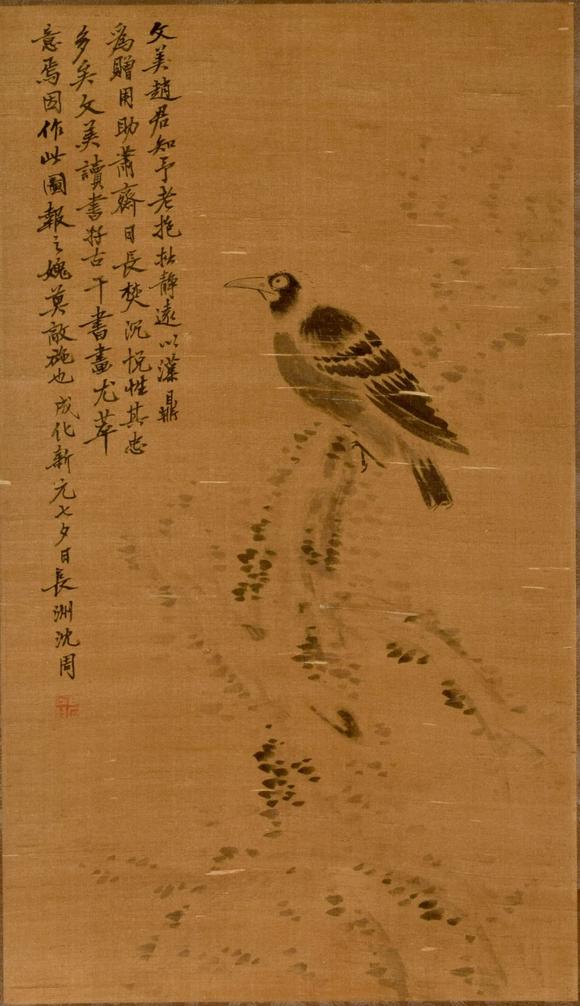 文美趙君知予老抱拙静遠以藻鼎
為贈用助蕭齋日長焚沉悦性其忠
多矣文美讀書好古于書畫尤萃
意焉因作此圖報之媿莫敵施也成化新元七夕日長洲沈周